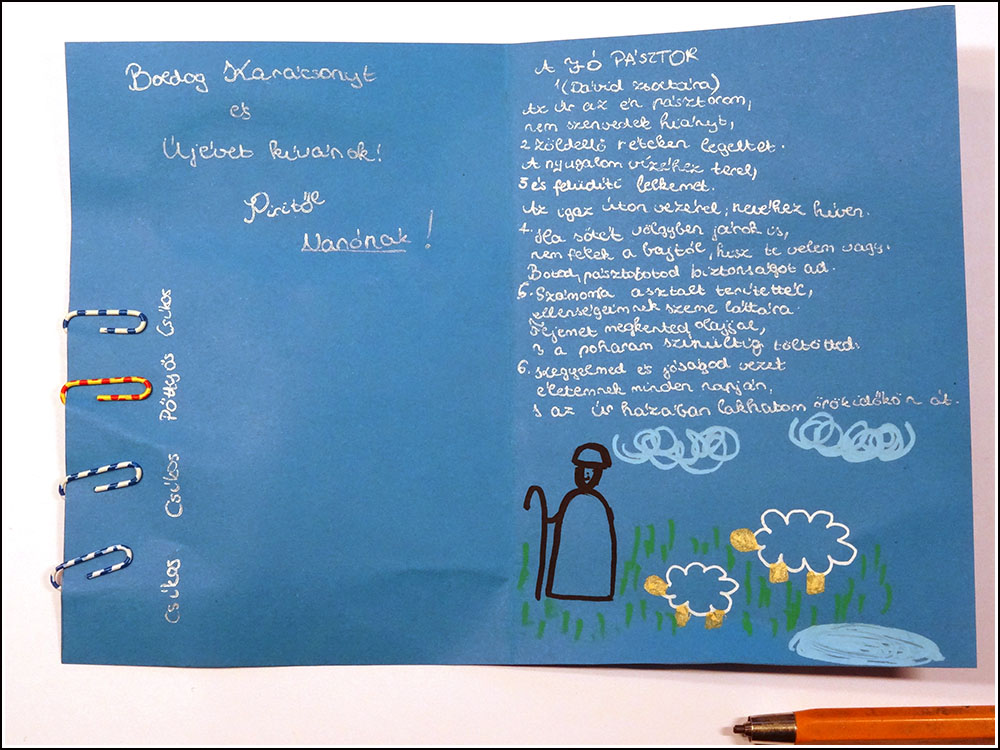 Boldog Karácsonyt
és
Újévet kívánok!
Piritől
Nanónak!
Csíkos
Pöttyös
Csíkos
Csíkos
A JÓ PÁSZTOR
1 (Dávid zsoltára)
Az Úr az én pásztorom,
nem szenvedek hiányt,
2 zöldellő réteken legeltet.
A nyugalom vizéhez terel,
3 és felüdíti lelkemet.
Az igaz úton vezérel, nevéhez híven.
4. Ha sötét völgyben járok is,
nem félek a bajtól, hisz te velem vagy.
Botod, pásztorbotod biztonságot ad.
5. Számomra asztalt terítettél,
ellenségeimnek szeme láttára.
Fejemet megkented olajjal,
s a poharam színültig töltötted.
6. Kegyelmed és jóságod vezet
életemnek minden napján,
s az Úr házában lakhatom örök időkön át.